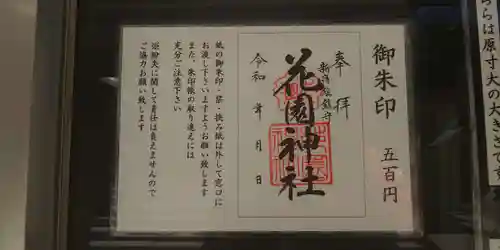 御朱印 五百円
奉拝
新宿総鎮守
花園神社
令和 年 月 日
紙の御朱印・帯・挟み紙は外して窓口に
お渡し下さいますようお願い致します
また、朱印帳の取り違えには
充分ご注意下さい
※紛失に関して責任は負えませんので
ご協力お願い致します
ちらは原寸大の大きさです